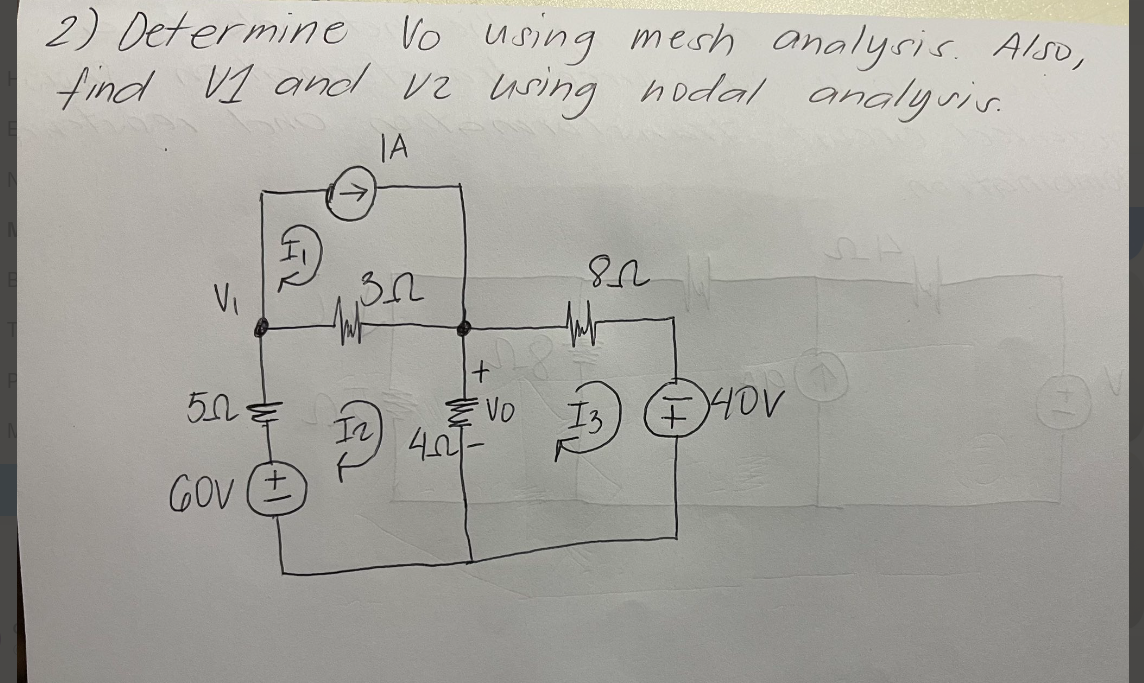 2) Determine Vo using mesh analysis. Also,
find V1 and V2 using nodal analysis.
1A
I1
V1
3Ω
8Ω
+
5Ω
I2
Vo
4Ω
-
I3
-
+
40V
60V
+
-